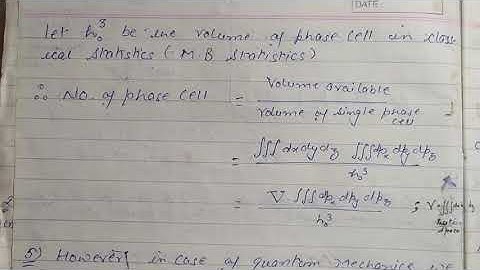 DATE:
let h₀³ be the volume of phase cell in class
ical statistics (M.B Statistics)
∴ No. of phase cell = Volume available / volume of single phase cell
= ∭dxdydz ∭dpx dpy dpz / h₀³
= V ∭dpx dpy dpz / h₀³ ; V=∭dx dy
space
5) However, in case of quantum mechanics we